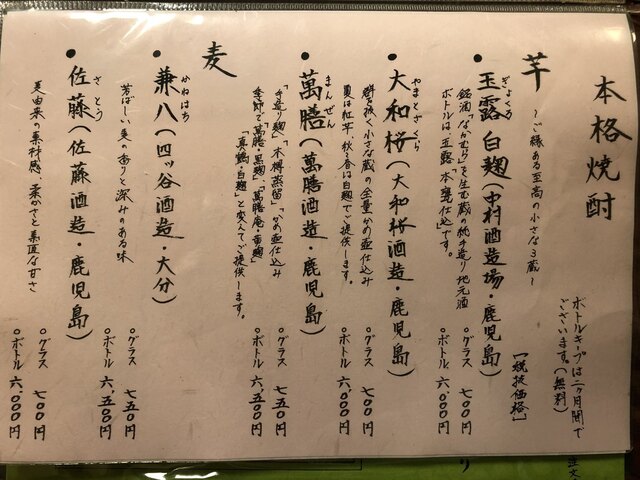 本格焼酎
ボトルキープは二ヶ月間で
ございます。(無料)
【税抜価格】
芋
～ご縁ある至高の小さな3蔵～
ぎょくろ
・玉露 白麹(中村酒造場・鹿児島)
銘酒「なかむら」を生む蔵の純手造り地元酒
ボトルは「玉露 本甕仕込」です。
○グラス 七00円
○ボトル 六、000円
やまとざくら
・大和桜(大和桜酒造・鹿児島)
群を抜く小さな蔵の全量かめ壷仕込み
夏は紅芋、秋冬春は白麹でご提供します。
○グラス 七00円
○ボトル 六、000円
まんぜん
・萬膳(萬膳酒造・鹿児島)
「手造り麹」「木樽蒸留」「かめ壷仕込み」
季節で「萬膳・黒麹」「萬膳庵・黄麹」
「真鶴・白麹」と変えてご提供します。
○グラス 七五0円
○ボトル 六、五00円
麦
かねはち
・兼八(四ッ谷酒造・大分)
芳ばしい麦の香りと深みのある味
○グラス 七五0円
○ボトル 六、五00円
さとう
・佐藤(佐藤酒造・鹿児島)
麦由来の素材感・柔かさと素直な甘さ
○グラス 七00円
○ボトル 六、000円